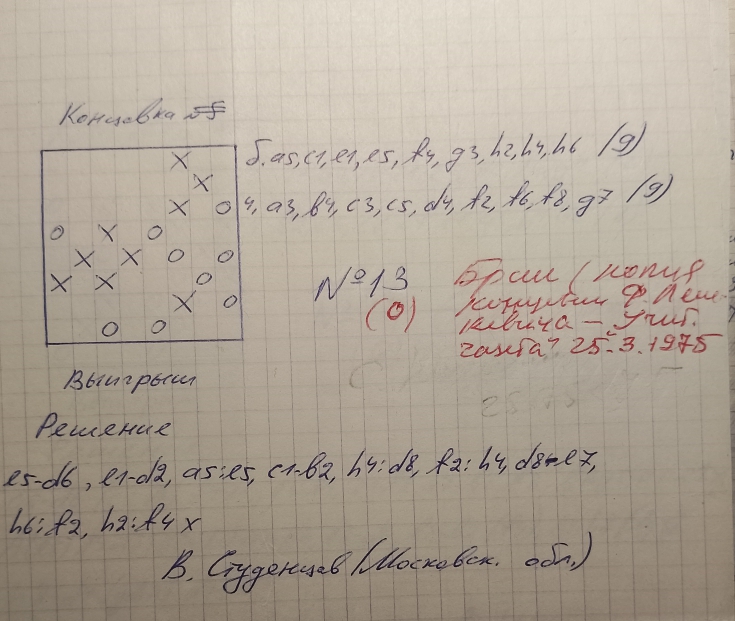 Концовка №5
б. a5, c1, e1, e5, f4, g3, h2, h4, h6 (9)
ч, a3, b4, c3, c5, d4, f2, f6, f8, g7 (9)
№13
(0)
Брак (копия
концовки Ф. Леш-
кевича - "Учит.
газета" 25.3.1975
Выигрыш
Решение
e5-d6, e1-d2, a5:e5, c1-b2, h4:d8, f2:h4, d8-e7,
h6:f2, h2:f4 x
В. Студенцов (Московск. обл.)